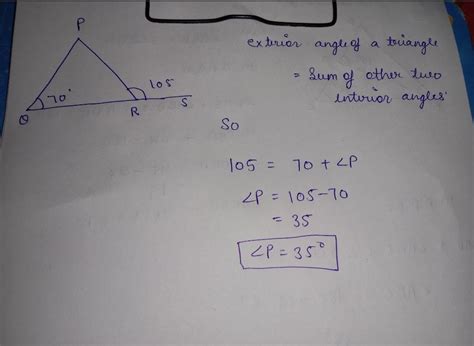 P
70°
105
Q
R
S
exterior angle of a triangle
= Sum of other two
interior angles
So
105 = 70 + ∠P
∠P = 105-70
= 35
∠P = 35°